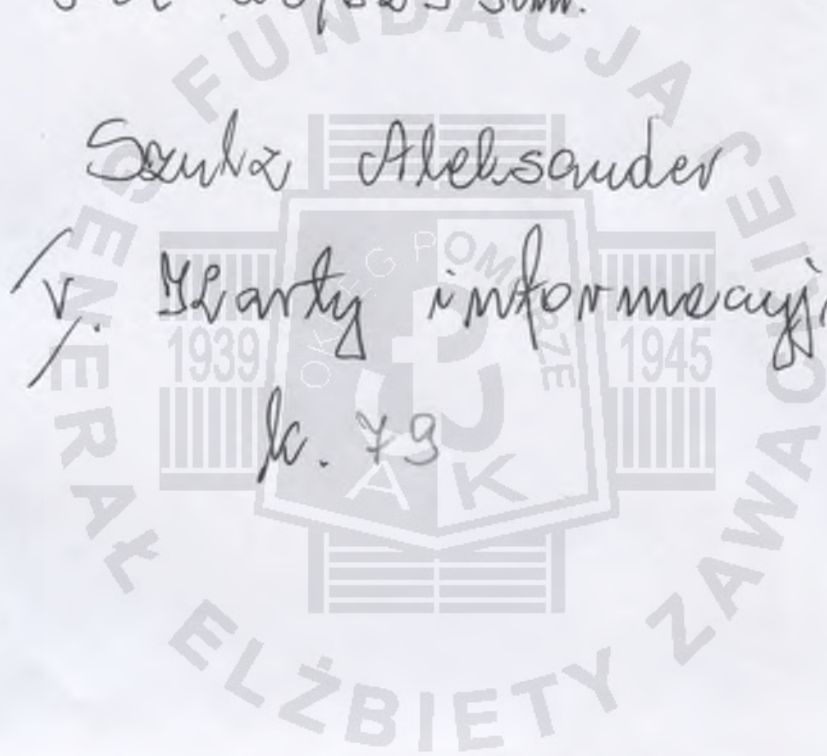 Szulz Aleksander
V. Karty informacyj
k. 79
FUNDACJA GENERAŁ ELŻBIETY ZAWACKIEJ
OKRĘG POMORZE
1939 1945
AK